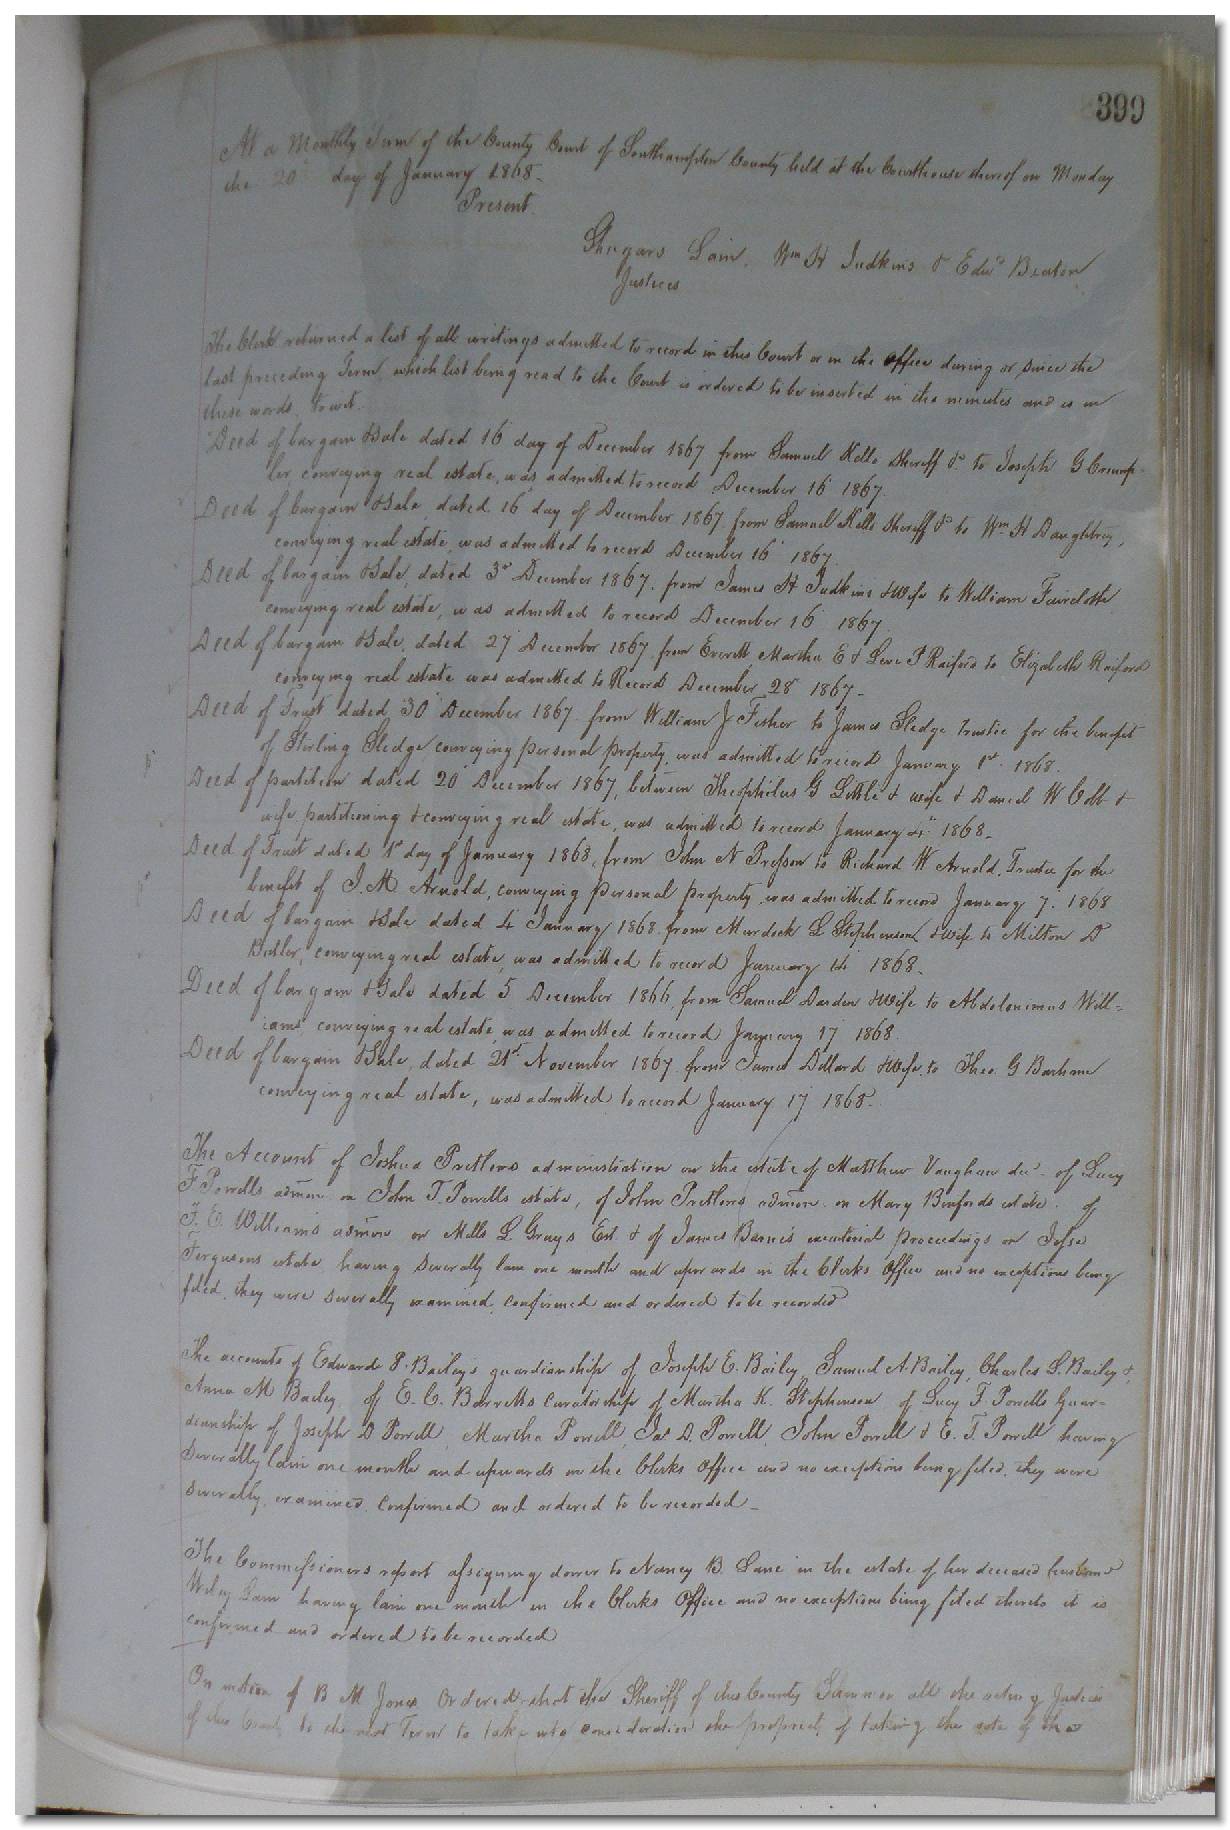 399
At a Monthly Term of the County Court of Southampton County held at the Courthouse thereof on Monday
the 20 day of January 1868.
Present.
Lain, Wm H Judkins & Edwd Beaton
Justices
The Clerk returned a list of all writings admitted to record in this Court or in the office during or since the
last preceding Term, which list being read to the Court is ordered to be inserted in the minutes and is in
these words, to wit.
Deed of bargain & Sale dated 16 day of December 1867 from Samuel Kello Sheriff &c to Joseph G Crump-
ler conveying real estate, was admitted to record December 16 1867.
Deed of bargain & Sale, dated 16 day of December 1867, from Samuel Kello Sheriff &c to Wm H Daughtrey,
conveying real estate, was admitted to record December 16 1867.
Deed of bargain & Sale, dated 3d December 1867, from James H Judkins & Wife to William Faircloth
conveying real estate, was admitted to record December 16 1867.
Deed of bargain & Sale, dated 27 December 1867, from Everett, Martha E & Levi P Raiford to Elizabeth Raiford
conveying real estate was admitted to Record December 28 1867-
Deed of Trust dated 30 December 1867 from William J Fisher to James Sledge trustee for the benefit
of Stirling Sledge conveying personal property, was admitted to record January 1st 1868.
Deed of partition dated 20 December 1867, between Theophilus G Little & wife & Daniel W Cobb &
wife, partitioning & conveying real estate, was admitted to record January 4th 1868-
Deed of Trust dated 1st day of January 1868, from John N Presson to Richard W Arnold, Trustee for the
benefit of J. M Arnold, conveying personal property was admitted to record January 7. 1868
Deed of bargain & Sale dated 4 January 1868 from Murdock L Stephenson & wife to Milton D
Butler, conveying real estate, was admitted to record January 14 1868-
Deed of bargain & Sale dated 5 December 1866, from Samuel Darden & Wife to Abdolonimus Will-
iams conveying real estate, was admitted to record January 17 1868.
Deed of bargain & Sale, dated 21st November 1867 from James Dillard & Wife, to Theo. G Barham
conveying real estate, was admitted to record January 17 1868-
The Account of Joshua Pretlows administration on the estate of Matthew Vaughan decd of Lucy
F Powells admon on John T. Powells estate, of John Pretlows admon on Mary Binfords estate. of
F. E. Williams admon on Mills L Grays Est. & of James Barnes executorial proceedings on Jesse
Fergusons estate having severally lain one month and upwards in the Clerks Office and no exceptions being
filed, they were severally examined, confirmed and ordered to be recorded
The accounts of Edward P. Baileys guardianship of Joseph E. Bailey, Samuel A. Bailey, Charles L. Bailey &
Anna M Bailey, of E. C. Barretts curatorship of Martha K. Stephenson of Lucy F. Powells Guar-
dianship of Joseph D Powell, Martha Powell, Jas D. Powell, John Powell & E. T. Powell having
severally lain one month and upwards in the Clerks Office and no exceptions being filed, they were
severally, examined, confirmed and ordered to be recorded-
The Commissioners report assigning dower to Nancy B. Lane in the estate of her deceased husband
Wiley Lain having lain one month in the Clerks Office and no exceptions being filed thereto it is
confirmed and ordered to be recorded
On motion of B M Jones Ordered that the Sheriff of this County Summon all the acting Justices
of this County to the next Term to take into consideration the propriety of taking the vote of the